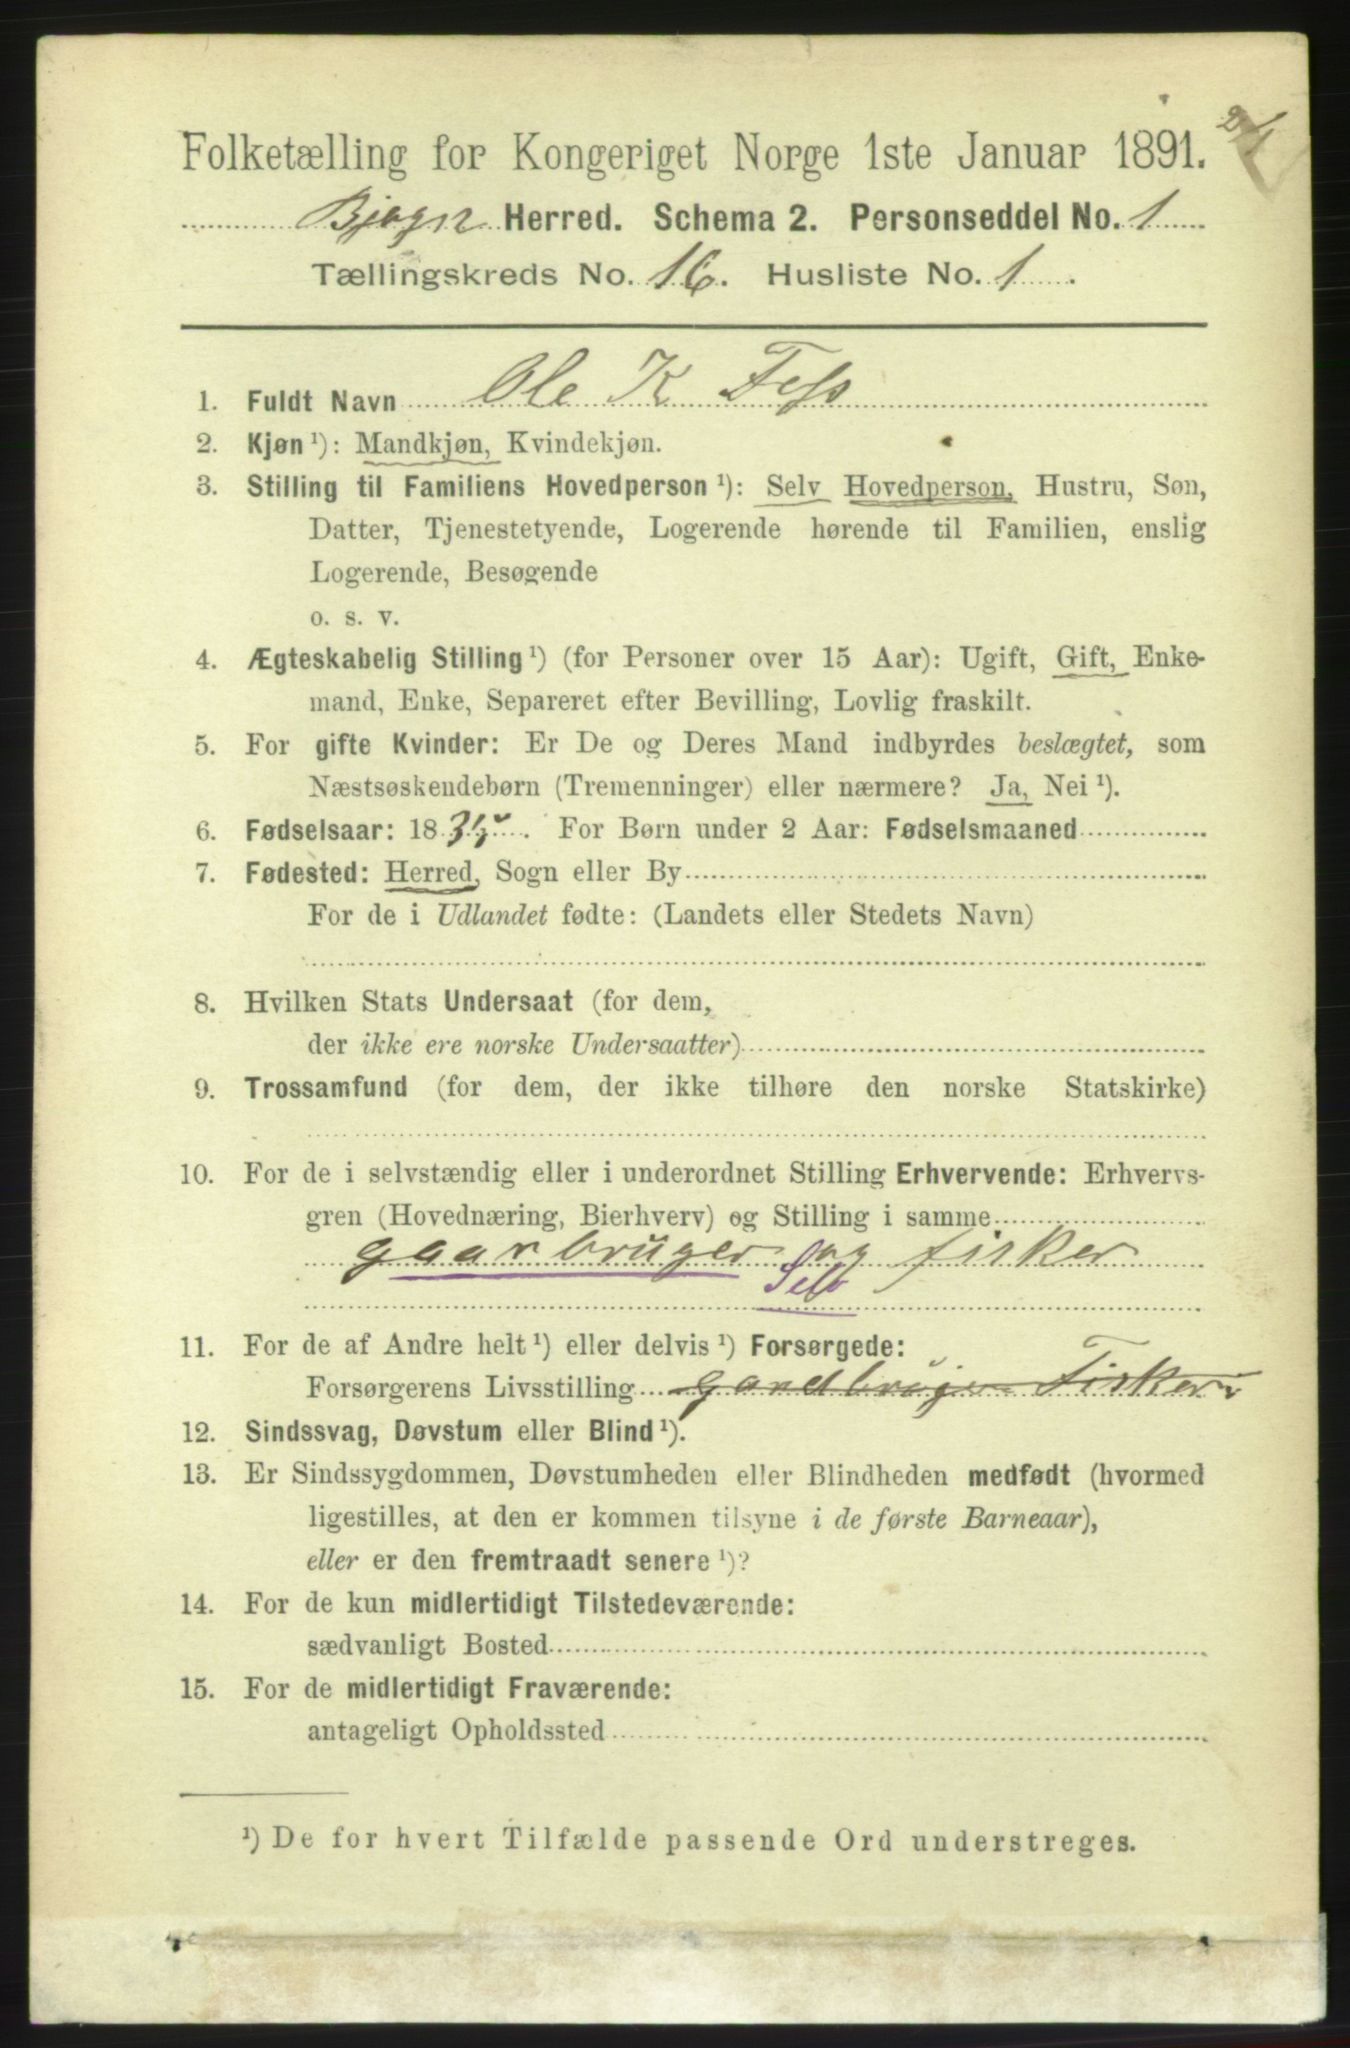 Folketælling for Kongeriget Norge 1ste Januar 1891.
Bjugn Herred. Schema 2. Personseddel No. 1
Tællingskreds No. 16. Husliste No. 1.
1. Fuldt Navn Ole K
2. Kjøn ¹): Mandkjøn, Kvindekjøn.
3. Stilling til Familiens Hovedperson ¹): Selv Hovedperson, Hustru, Søn,
Datter, Tjenestetyende, Logerende hørende til Familien, enslig
Logerende, Besøgende
o. s. v.
4. Ægteskabelig Stilling ¹) (for Personer over 15 Aar): Ugift, Gift, Enke-
mand, Enke, Separeret efter Bevilling, Lovlig fraskilt.
5. For gifte Kvinder: Er De og Deres Mand indbyrdes beslægtet, som
Næstsøskendebørn (Tremenninger) eller nærmere? Ja, Nei ¹).
6. Fødselsaar: 18 . For Børn under 2 Aar: Fødselsmaaned
7. Fødested: Herred, Sogn eller By
For de i Udlandet fødte: (Landets eller Stedets Navn)
8. Hvilken Stats Undersaat (for dem,
der ikke ere norske Undersaatter)
9. Trossamfund (for dem, der ikke tilhøre den norske Statskirke)
10. For de i selvstændig eller i underordnet Stilling Erhvervende: Erhvervs-
gren (Hovednæring, Bierhverv) og Stilling i samme
gaarbruger og fisker
Selv
11. For de af Andre helt ¹) eller delvis ¹) Forsørgede:
Forsørgerens Livsstilling Fisker
12. Sindssvag, Døvstum eller Blind ¹).
13. Er Sindssygdommen, Døvstumheden eller Blindheden medfødt (hvormed
ligestilles, at den er kommen tilsyne i de første Barneaar),
eller er den fremtraadt senere ¹)?
14. For de kun midlertidigt Tilstedeværende:
sædvanligt Bosted
15. For de midlertidigt Fraværende:
antageligt Opholdssted
¹) De for hvert Tilfælde passende Ord understreges.